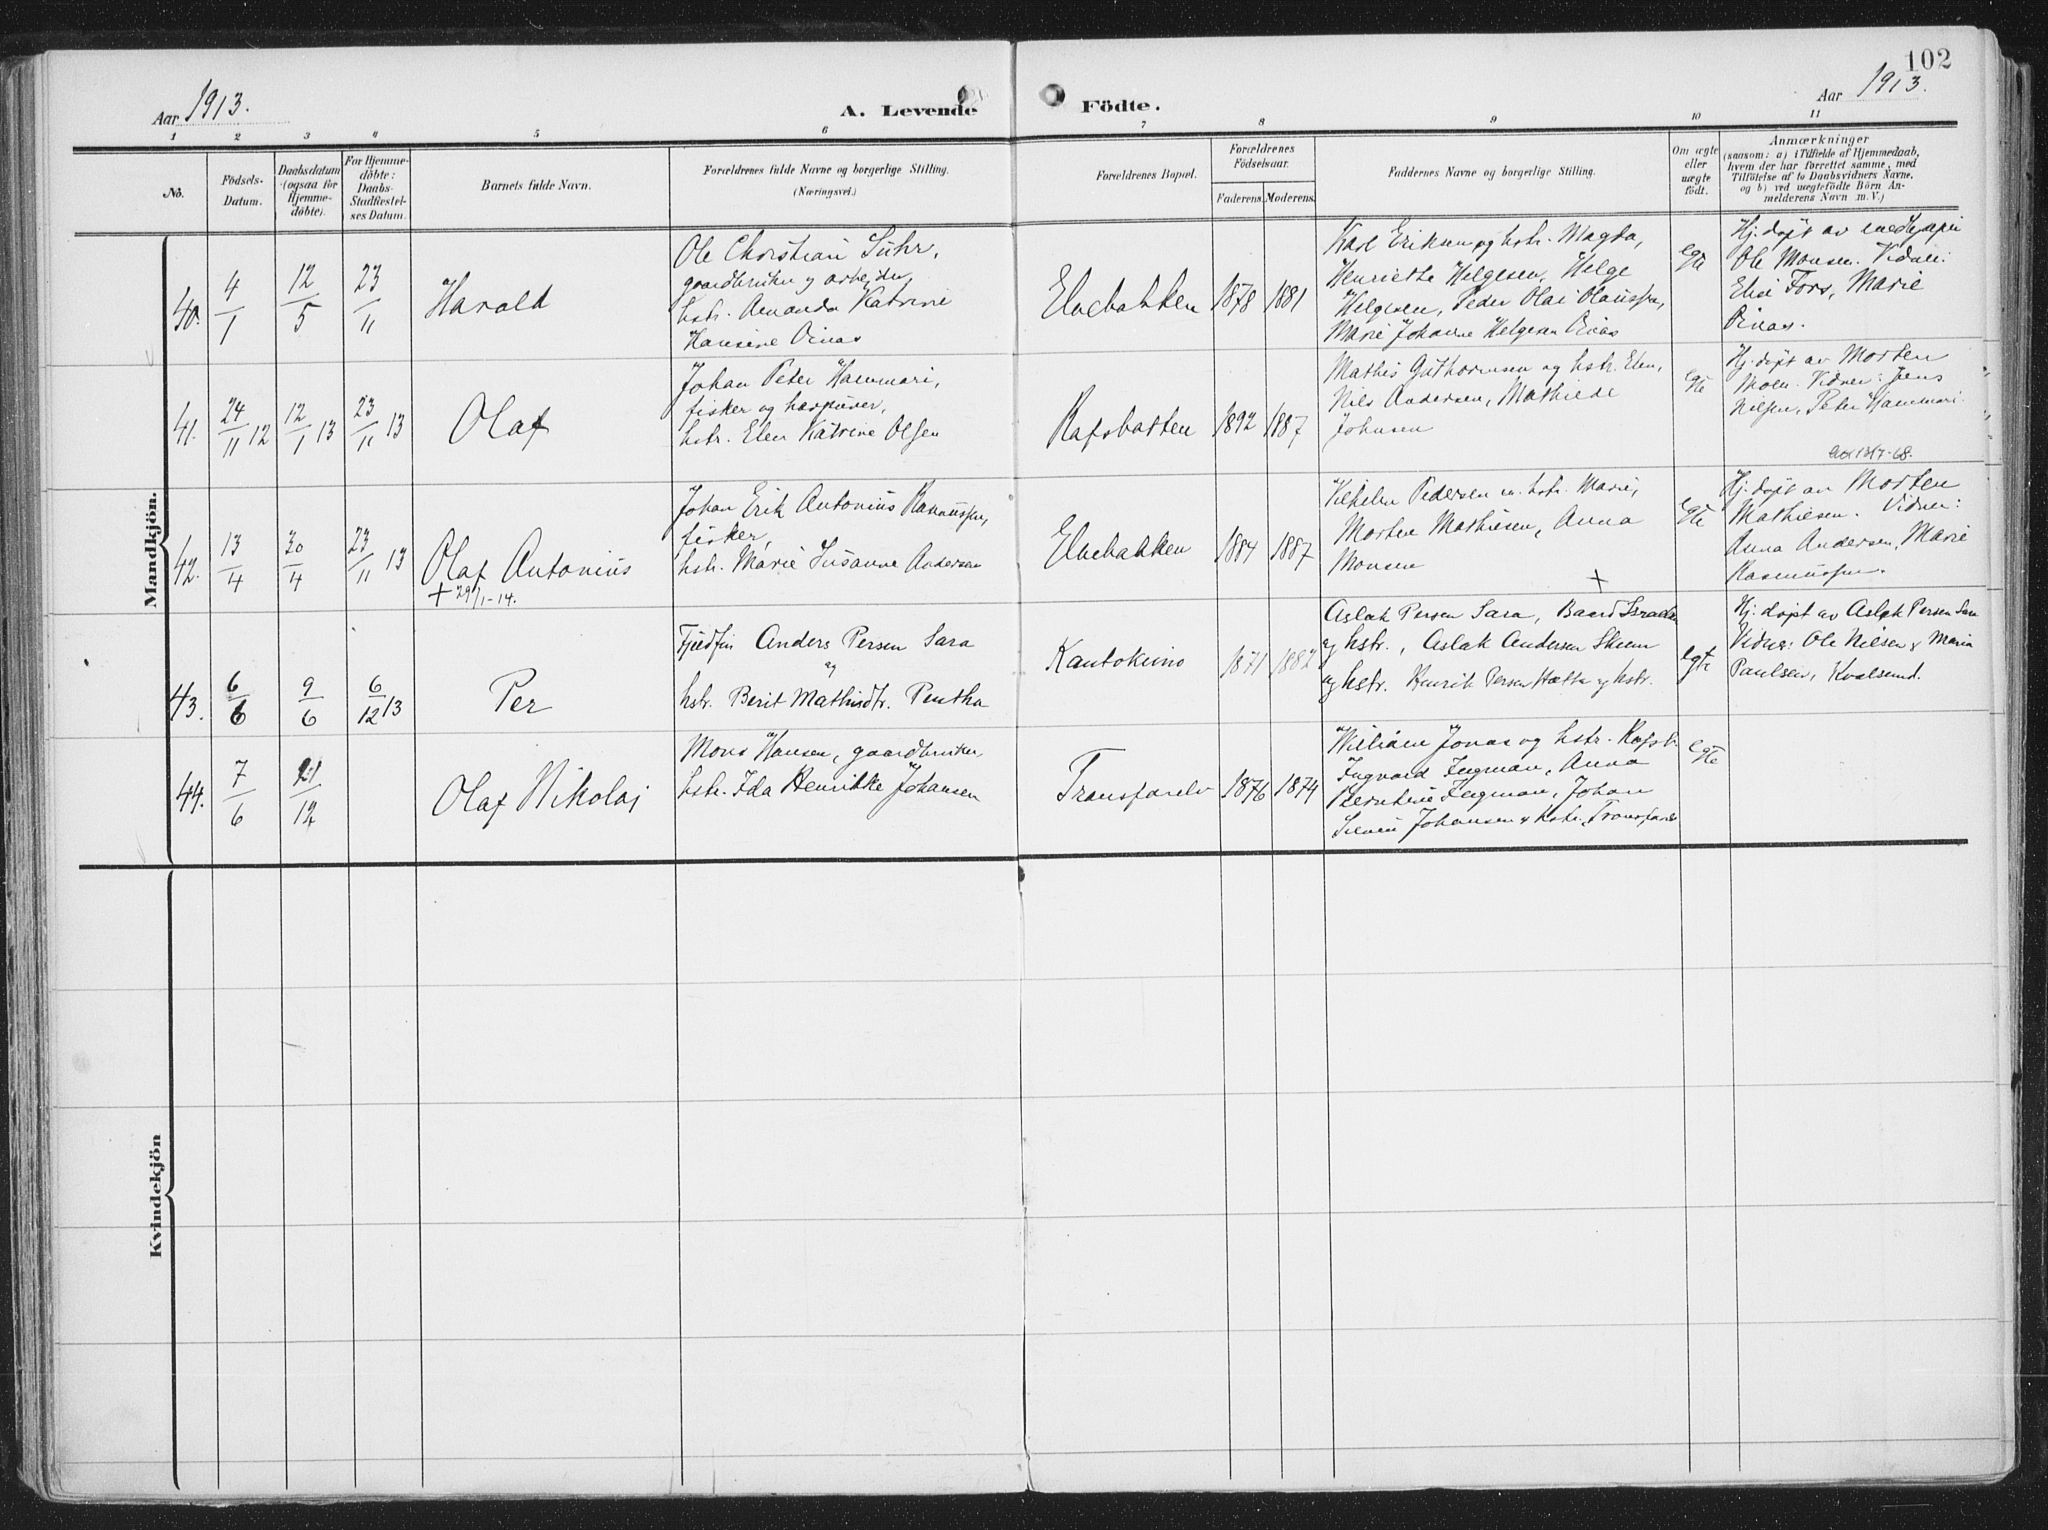 102
Aar 1913.
A. Levende Födte.
Aar 1913.
1 2 3 4 5 6 7 8 9 10 11
No.
Födsels-
Datum.
Daabsdatum
(ogsaa for
Hjemme-
döbte).
For Hjemme-
döbte:
Daabs-
Stadfæstel-
ses Datum.
Barnets fulde Navn.
Forældrenes fulde Navne og borgerlige Stilling.
(Næringsvei.)
Forældrenes Bopæl.
Forældrenes
Födselsaar.
Faderens. Moderens.
Faddernes Navne og borgerlige Stilling.
Om ægte
eller
uægte
födt.
Anmærkninger
(saasom: a) i Tilfælde af Hjemmedaab,
hvem der har forrettet samme, med
Tilföielse af to Daabsvidners Navne,
og b) ved uægtefödte Börn An-
melderens Navn m. V.)
Mandkjön.
40.
4/1
12/5
23/11
Harald
Ole Christian Suhr,
gaardbruker og arbeider,
hstr. Amanda Katrine
Hansine
Elvebakken
1878 1881
Karl Eriksen og hstr. Magda,
Henriette Helgesen, Helge
Helgesen, Peder Olai Olaussen,
Marie Johanne Helgesen
egte
Hj. døpt av
Ole Monsen. Vidner:
Elise Fors, Marie
41.
24/11 12
12/1 13
23/11 13
Olaf
Johan Peter Hammari,
fisker og harpuner,
hstr. Elen Katrine Olsen
Rafsbotten
1892 1887
Mathis Guthormsen og hstr. Elen,
Nils Andersen, Mathilde
Johnsen
egte
Hj. døpt av Morten
Moen. Vidner: Jens
Nilsen, Peter Hammari.
13/7-68.
42.
13/4
30/4
23/11 13
Olaf Antonius
+ 29/1-14.
Johan Erik Antonius Rasmussen,
fisker,
hstr. Marie Susanne Andersen
Elvebakken
1884 1887
Vilhelm Pedersen m. hstr. Marie,
Morten Mathiesen, Anna
Monsen
+
egte
Hj. døpt av Morten
Mathiesen. Vidner:
Anna Andersen, Marie
Rasmussen.
43.
6/6
9/6
6/12 13
Per
Fjeldfin Anders Persen Sara
og
hstr. Berit Mathisdtr. Pentha
Kautokeino
1871 1882
Aslak Persen Sara, Baard Israelsen
og hstr., Aslak Andersen Skum
og hstr. Henrik Persen Hætta og hstr.
egte
Hj. døpt av Aslak Persen Sara
Vidner: Ole Nilsen & Maria
Paulsen, Kvalsund.
44.
7/6
21/12
Olaf Nikolaj
Mons Hansen, gaardbruker,
hstr. Ida Henrikke Johansen
Transfarelv
1876 1874
Wiliam Jonas og hstr. Rafsb.
Ingvard Ingman, Anna
Berntine Ingman, Johan
Johansen & hstr. Transfarelv
egte
Kvindekjön